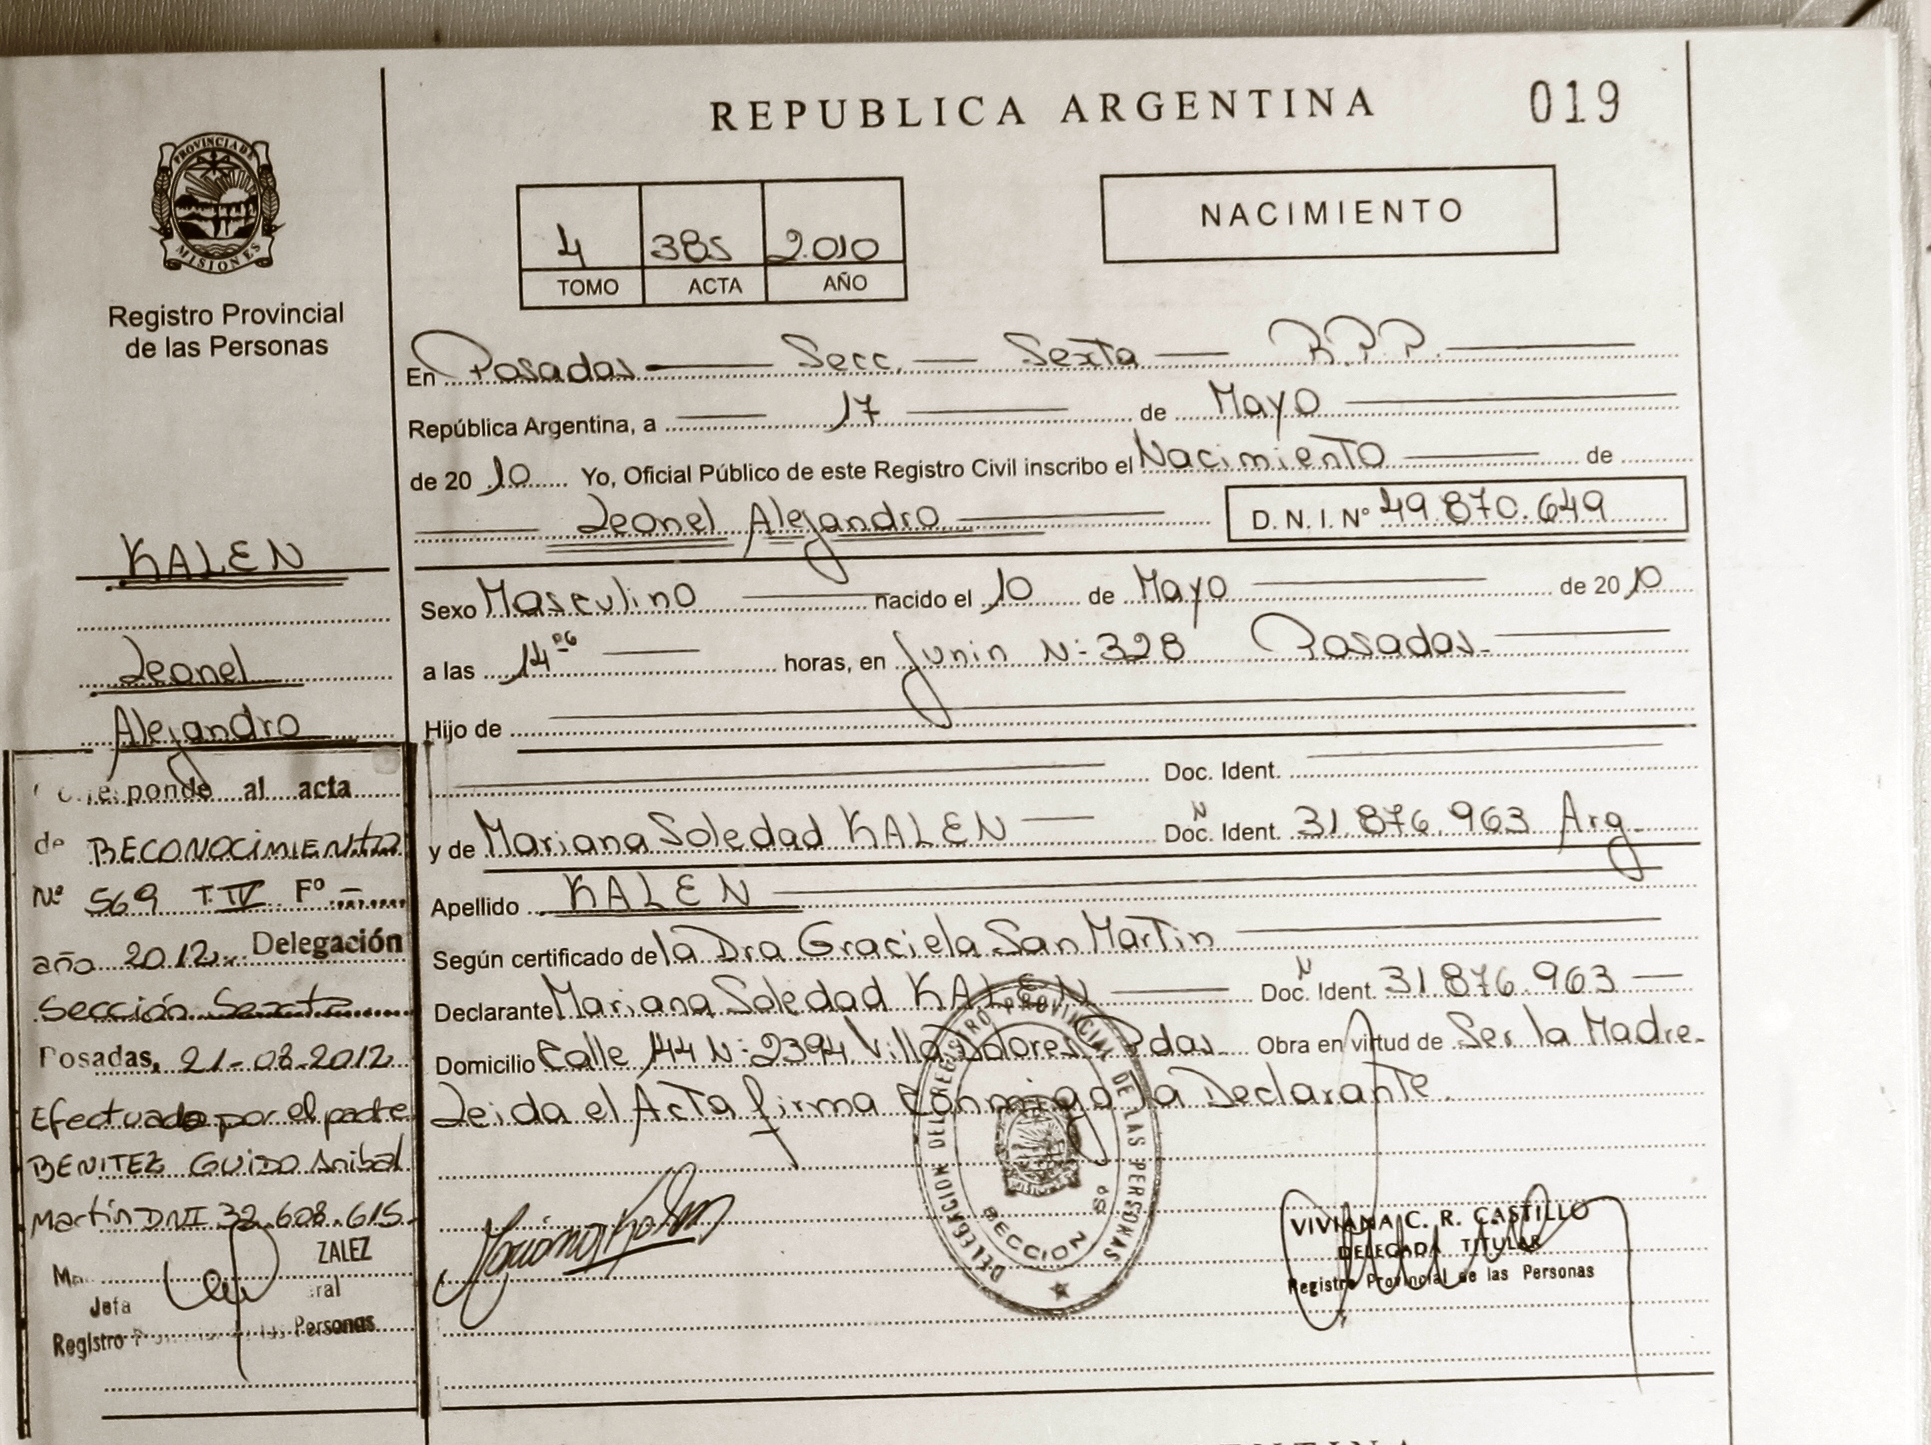 REPUBLICA ARGENTINA
019
PROVINCIA DE
MISIONES
Registro Provincial
de las Personas
4 385 2.010
TOMO ACTA AÑO
NACIMIENTO
En Posadas Secc. Sexta R.P.P.
República Argentina, a 17 de Mayo
de 20 10 Yo, Oficial Público de este Registro Civil inscribo el Nacimiento de
Leonel Alejandro D.N.I. Nº 49.870.649
Sexo Masculino nacido el 10 de Mayo de 20 10
a las 14 06 horas, en Junin N: 328 Posadas
Hijo de
Doc. Ident.
y de Mariana Soledad KALEN Doc. N Ident. 31.876.963 Arg.
Apellido KALEN
Según certificado de la Dra Graciela San Martin
Declarante Mariana Soledad KALEN Doc. N Ident. 31.876.963
Domicilio Calle 144 N: 2394 Villa Dolores Pdas. Obra en virtud de Ser la Madre.
Leida el Acta firma Conmigo la Declarante.
KALEN
Leonel
Alejandro
Corresponde al acta
de RECONOCIMIENTO
Nº 569 T. IV Fº -
año 2012 Delegación
Sección Sexta
Posadas, 21-08-2012
Efectuado por el padre
BENITEZ GUIDO Anibal
Martín DNI 32.608.615
ZALEZ
Jefa
Registro Personas
Mariana Kalen
DELEGACION DEL REGISTRO PROVINCIAL DE LAS PERSONAS
SECCION 6ª
VIVIANA C. R. CASTILLO
DELEGADA TITULAR
Registro Provincial de las Personas